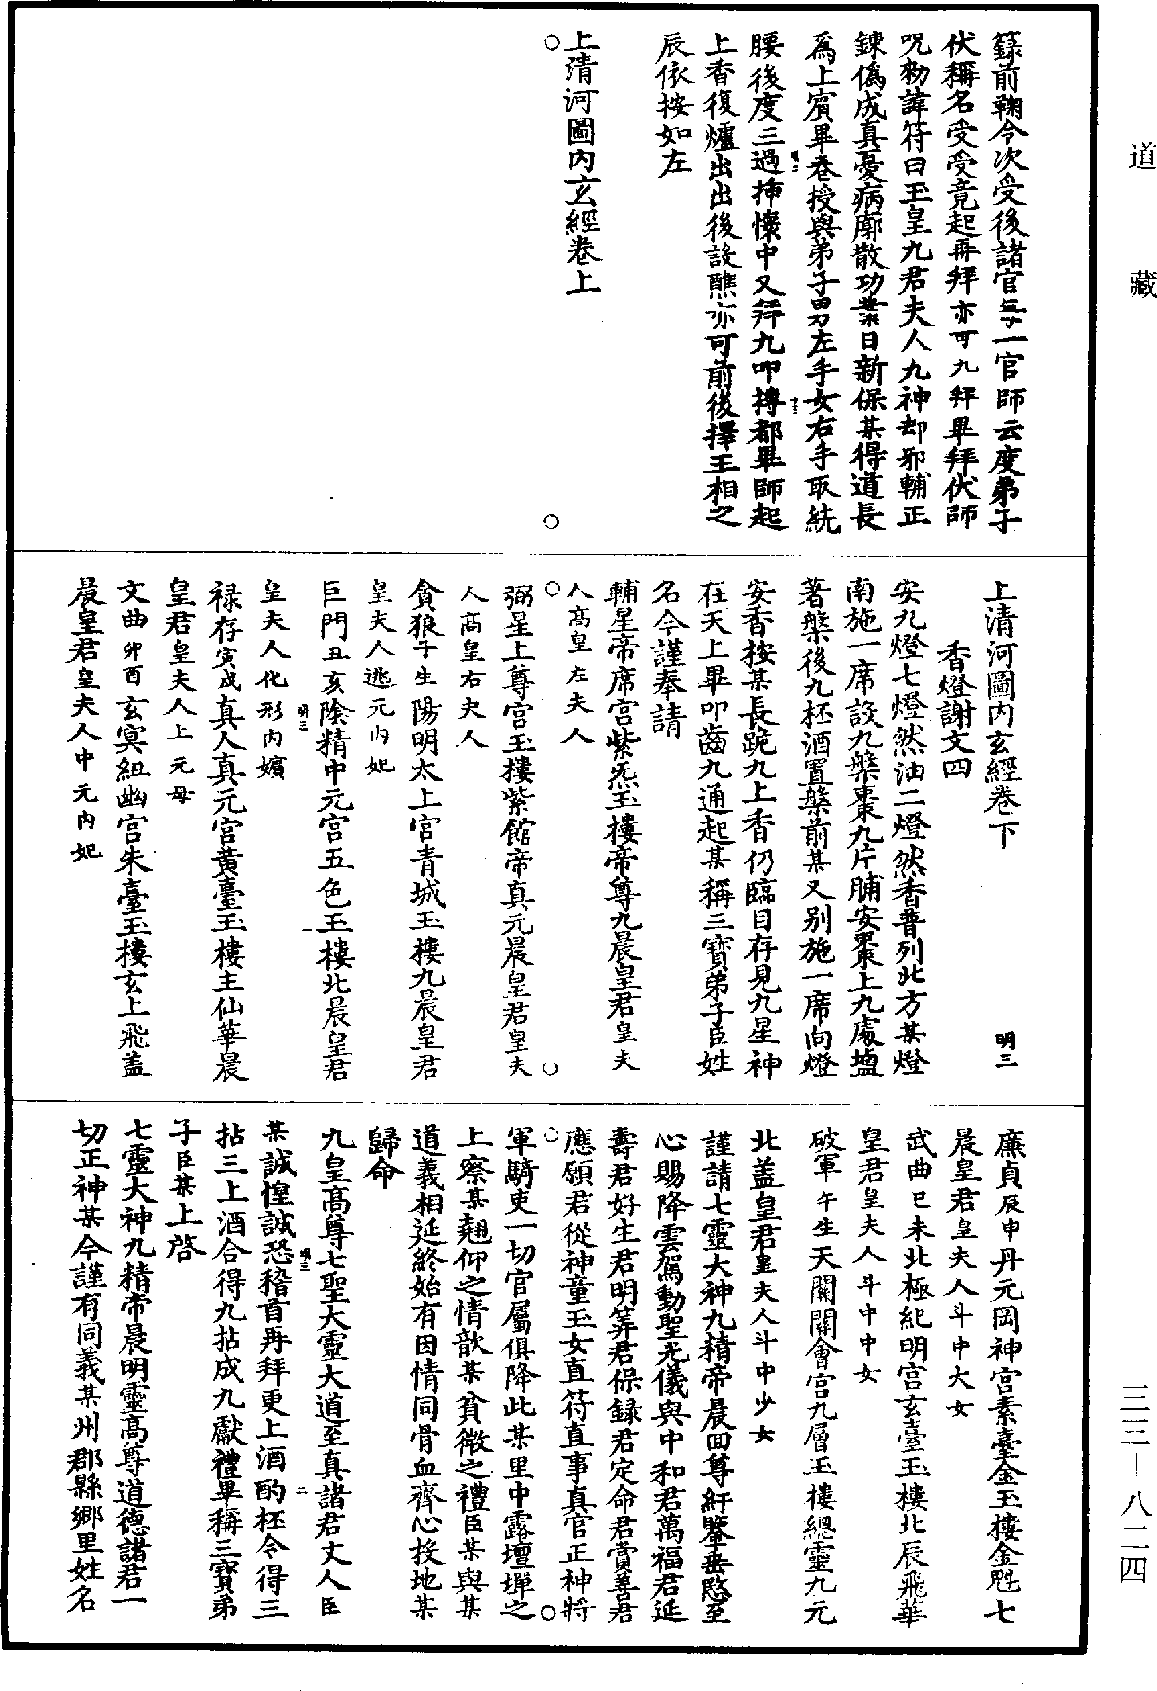 道藏
籙前鞠今次受後諸官每一官師云度弟子
伏稱名受受竟起再拜亦可九拜畢拜伏師
呪勑諱符曰玉皇九君夫人九神却邪輔正
鍊僞成真憂病廓散功業日新保某得道長
爲上賓畢卷授與弟子男左手女右手取統
腰後度三過揷懷中又拜九叩摶都畢師起
上香復爐出出後設醮亦可前後擇王相之
辰依按如左
上清河圖內玄經卷上
上清河圖內玄經卷下
明三
香燈謝文四
安九燈七燈然油二燈然香普列北方某燈
南施一席設九槃棗九片脯安棗上九處塩
著槃後九杯酒置槃前某又別施一席向燈
安香按某長跪九上香仍臨目存見九星神
在天上畢叩齒九通起某稱三寶弟子臣姓
名今謹奉請
輔星帝席宮紫炁玉樓帝尊九晨皇君皇夫
人高皇左夫人
弼星上尊宮玉樓紫館帝真元晨皇君皇夫
人高皇右夫人
貪狼子生陽明太上宮青城玉樓九晨皇君
皇夫人逃元內妃
巨門丑亥陰精中元宮五色玉樓北晨皇君
皇夫人化形內嬪
祿存寅戌真人真元宮黃臺玉樓主仙華晨
皇君皇夫人上元母
文曲卯酉玄冥紐幽宮朱臺玉樓玄上飛蓋
晨皇君皇夫人中元內妃
廉貞辰申丹元岡神宮素臺金玉樓金魁七
晨皇君皇夫人斗中大女
武曲巳未北極紀明宮玄臺玉樓北辰飛華
皇君皇夫人斗中中女
破軍午生天關關會宮九層玉樓總靈九元
北蓋皇君皇夫人斗中少女
謹請七靈大神九精帝晨回尊紆鑒垂愍至
心賜降雲駕動聖光儀與中和君萬福君延
壽君好生君明筭君保錄君定命君賞善君
應願君從神童玉女直符直事真官正神將
軍騎吏一切官屬俱降此某里中露壇墠之
上察某翹仰之情歆某貧微之禮臣某與某
道義相延終始有因情同骨血齊心投地某
歸命
九皇高尊七聖大靈大道至真諸君丈人臣
某誠惶誠恐稽首再拜更上酒酌杯令得三
拈三上酒合得九拈成九獻禮畢稱三寶弟
子臣某上啓
七靈大神九精帝晨明靈高尊道德諸君一
切正神某今謹有同義某州郡縣鄉里姓名
三三—八二四